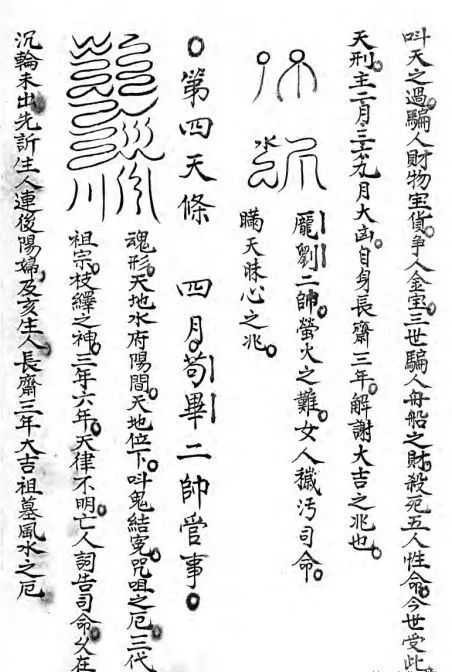 叫天之過。騙人財物宝貨爭人金宝。三世騙人舟船之財。殺死五人性命。今世受此
天刑。主二月三六九月大凶。自身長齋三年。解謝大吉之兆也。
龐劉二帥。螢火之難。女人穢污司命。
瞞天昧心之兆。
○第四天條 四月。苟畢二帥管事。
魂形。天地水府陽間。天地位下。叫鬼結寃。咒咀之厄。三代
祖宗。枝繹之神。三年六年。天律不明。亡人詞告司命。久在
沉輪未出。先訴生人連後陽婦。及亥生人。長齋三年大吉祖墓風水之厄